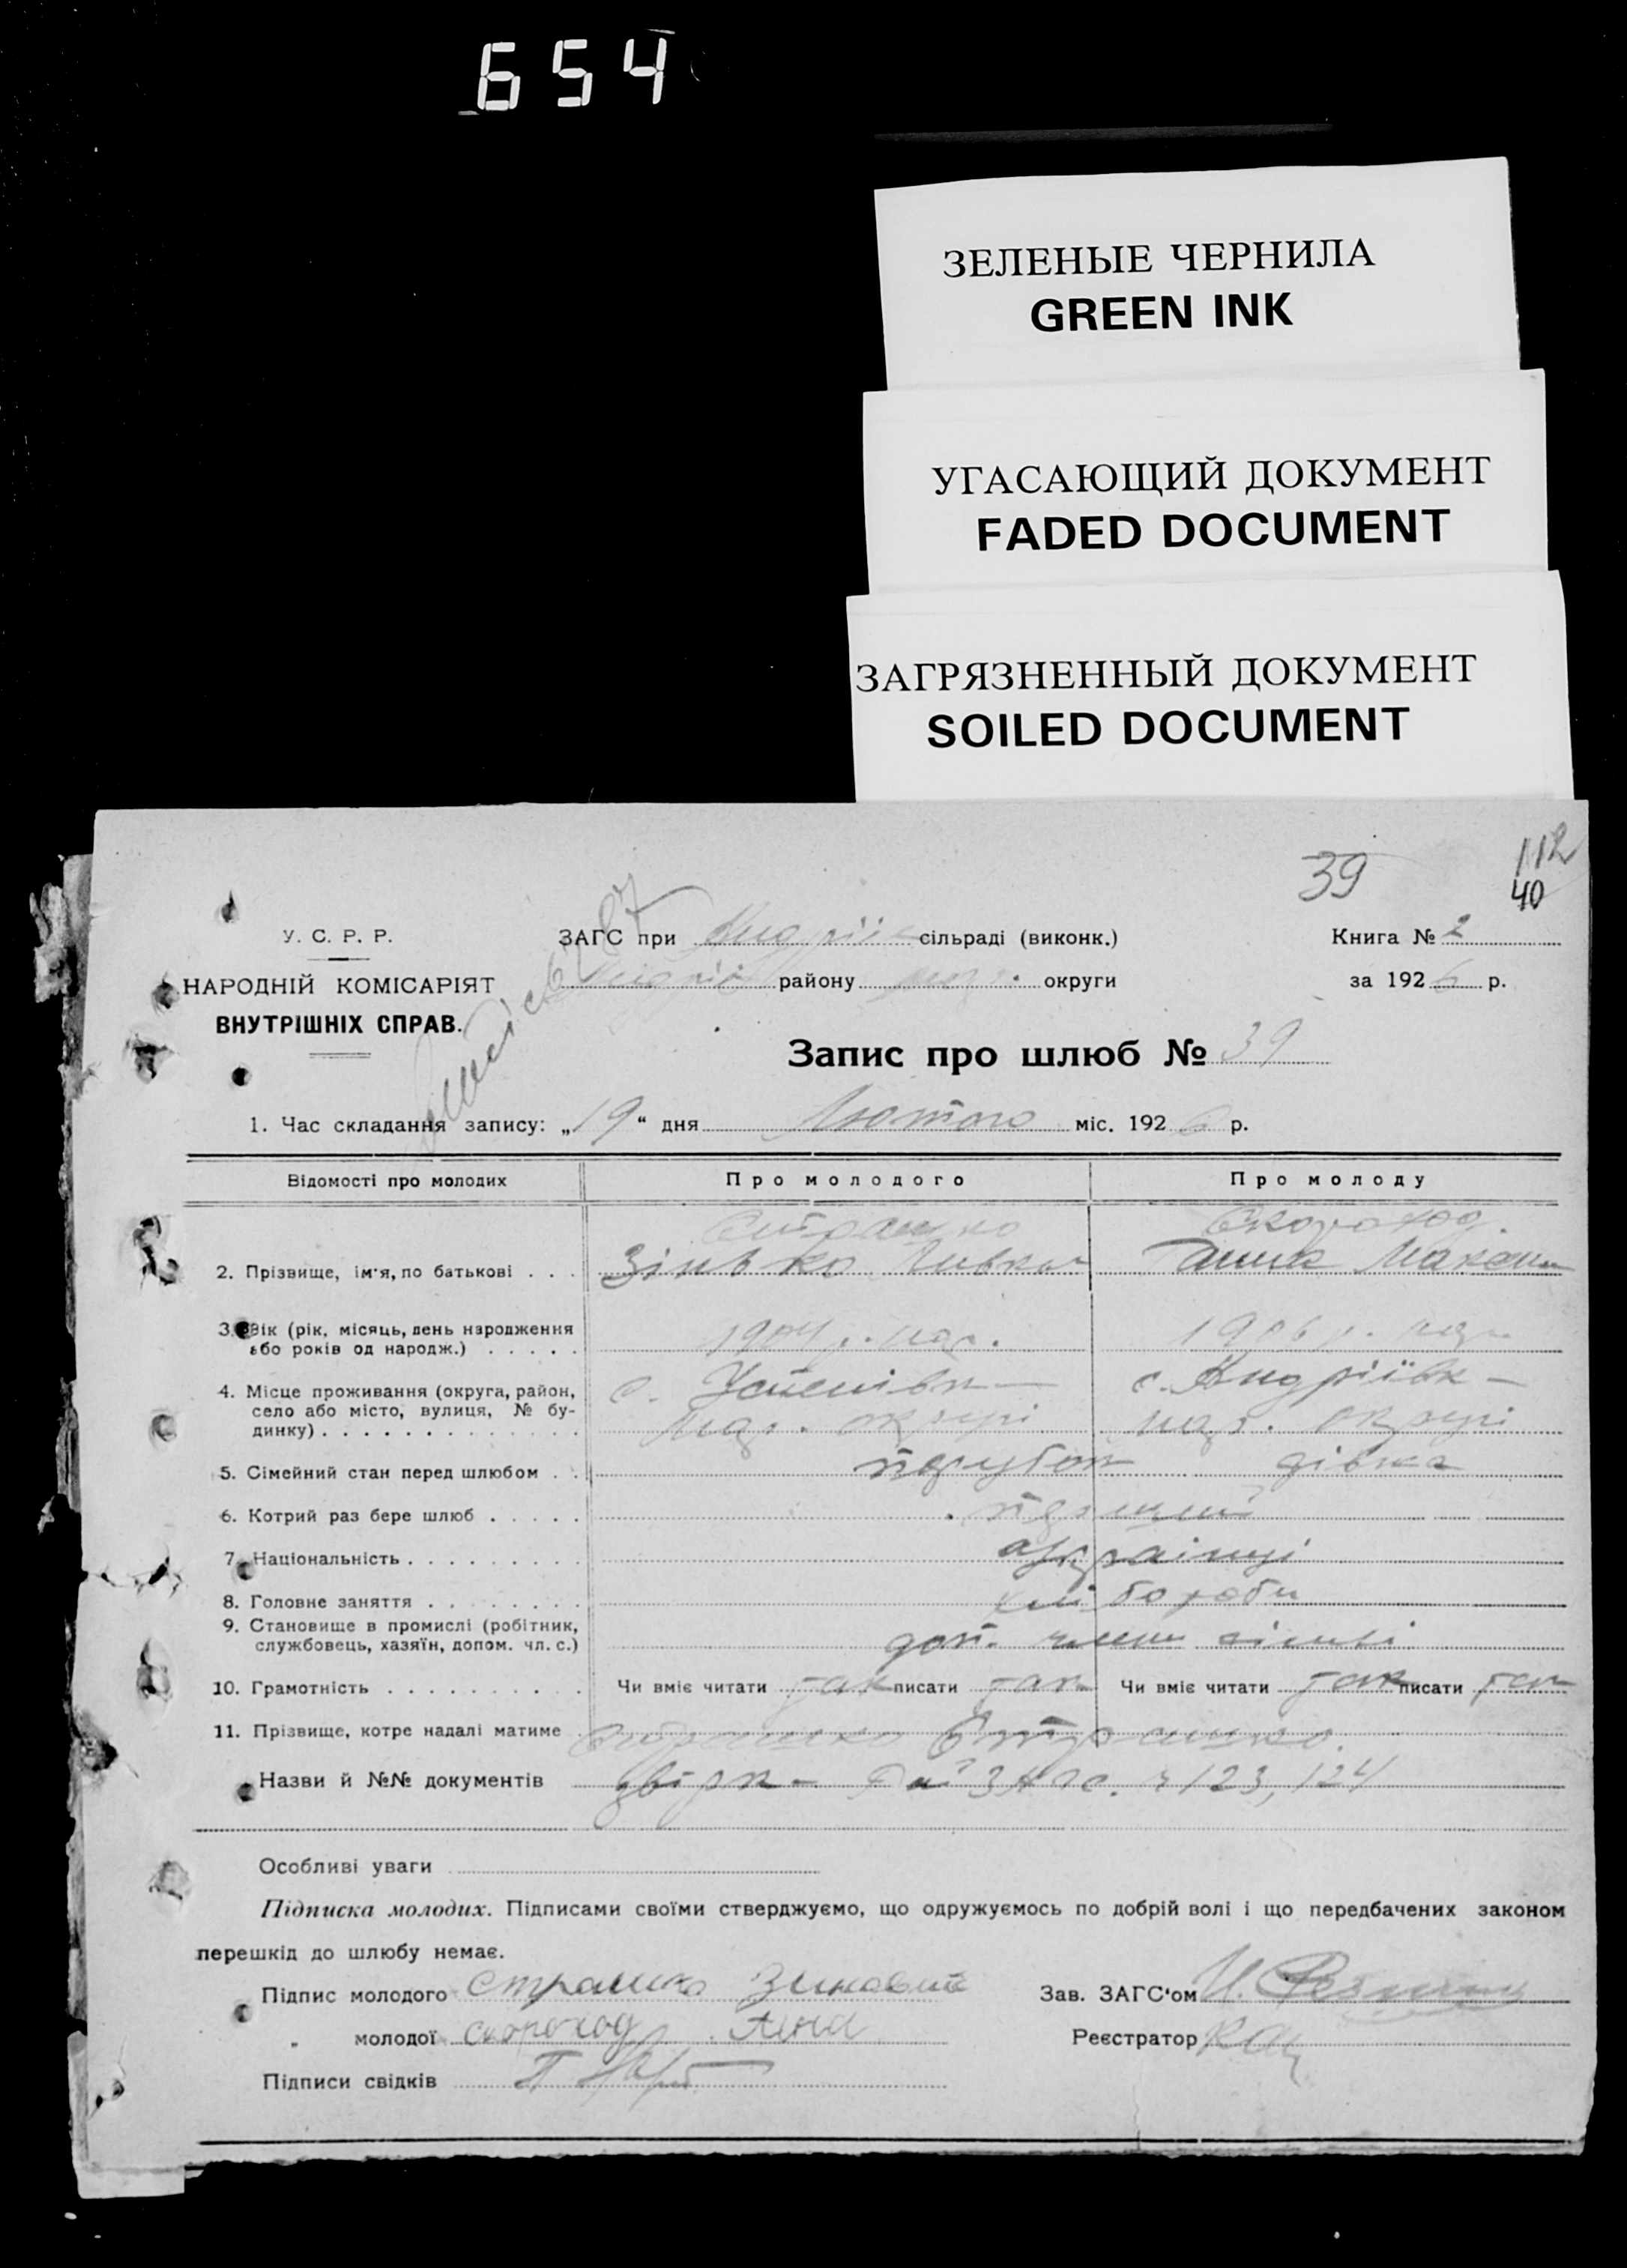 654
ЗЕЛЕНЫЕ ЧЕРНИЛА
GREEN INK
УГАСАЮЩИЙ ДОКУМЕНТ
FADED DOCUMENT
ЗАГРЯЗНЕННЫЙ ДОКУМЕНТ
SOILED DOCUMENT
39
112
40
У. С. Р. Р.
НАРОДНІЙ КОМІСАРІЯТ
ВНУТРІШНІХ СПРАВ.
ЗАГС при сільраді (виконк.)
району округи
Книга № 2
за 1926 р.
Запис про шлюб № 39
1. Час складання запису: „19“ дня Лютого міс. 1926 р.
Відомості про молодих
Про молодого
Про молоду
2. Прізвище, ім'я, по батькові . . .
Страшко
Зінько
Скороход.
Ганна Максим
3. Вік (рік, місяць, день народження
або років од народж.) . . . . .
1904 р. нар.
1906 р. нар.
4. Місце проживання (округа, район,
село або місто, вулиця, № бу-
динку) . . . . . . . . . . . . .
с. Успенівка
окру
с. Андріївк
окру
5. Сімейний стан перед шлюбом . .
парубок
дівка
6. Котрий раз бере шлюб . . . . .
7. Національність . . . . . . . . .
українці
8. Головне заняття . . . . . . . .
хліборобы
9. Становище в промислі (робітник,
службовець, хазяїн, допом. чл. с.)
доп. члени сімьі
10. Грамотність . . . . . . . . . .
Чи вміє читати так писати так
Чи вміє читати так писати так
11. Прізвище, котре надалі матиме .
Страшко Страшко.
Назви й №№ документів
ЗАГС. 123, 124
Особливі уваги
Підписка молодих. Підписами своїми стверджуємо, що одружуємось по добрій волі і що передбачених законом
перешкід до шлюбу немає.
Підпис молодого Страшко Зиновий
„ молодої Скороход Анна
Підписи свідків
Зав. ЗАГС'ом
Реєстратор